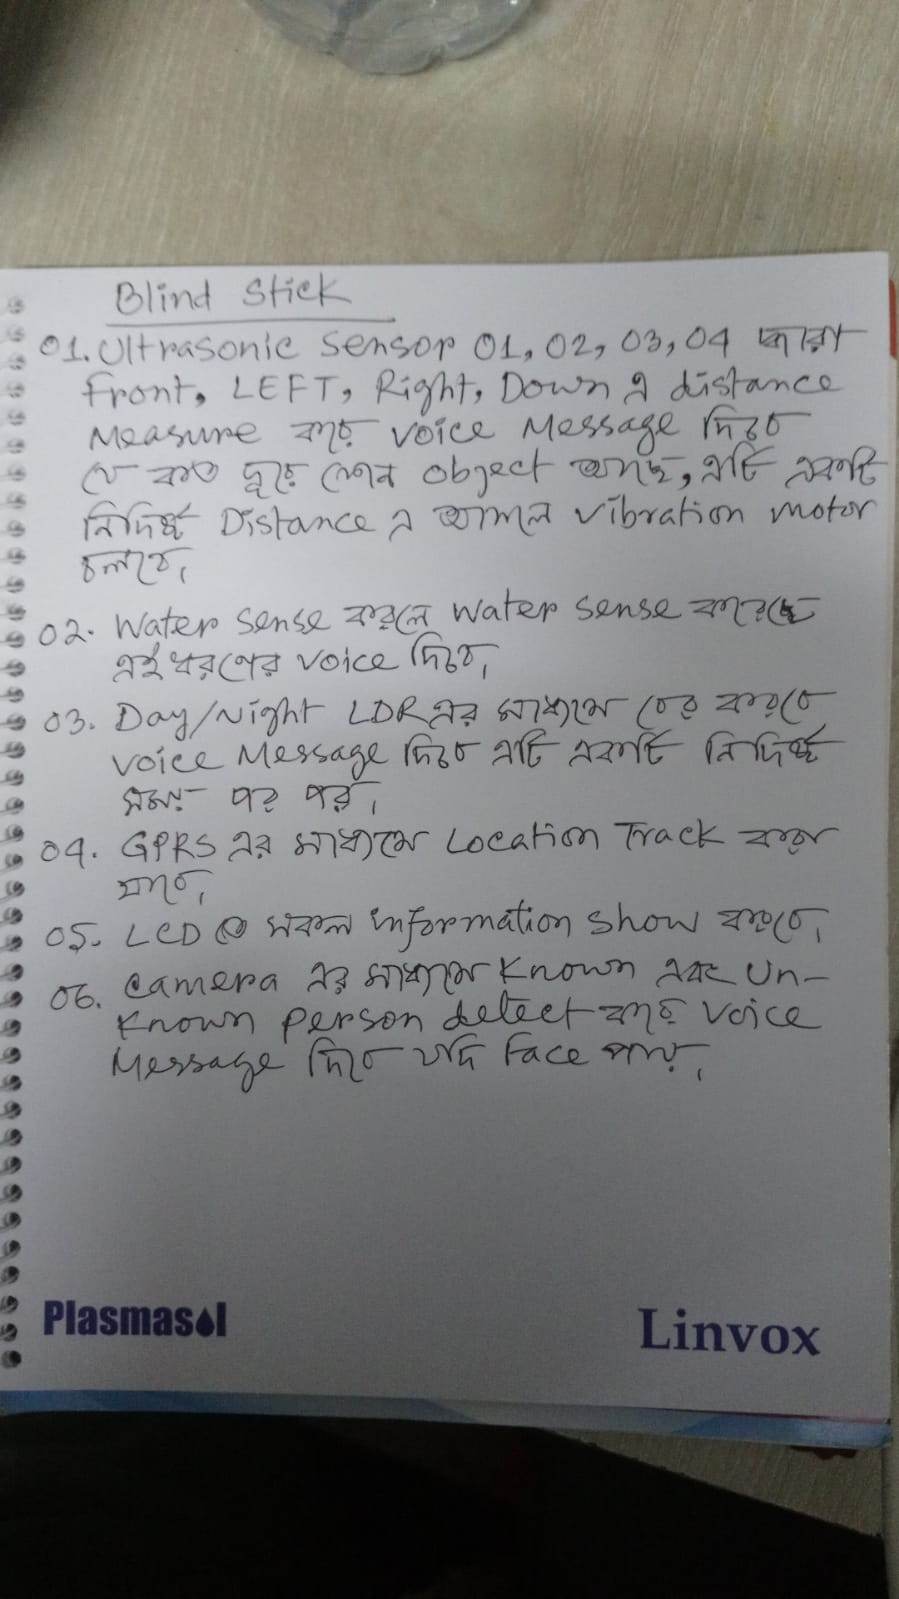 Blind Stick
01. Ultrasonic Sensor 01, 02, 03, 04 দ্বারা
front, LEFT, Right, Down এ distance
Measure করে voice Message দিবে
যে কত দূরে কোন object আছে, এটি একটি
নির্দিষ্ট Distance এ আসলে vibration motor
চলবে,
02. Water sense করলে Water sense করেছে
এই ধরণের voice দিবে,
03. Day/Night LDR এর মাধ্যমে বের করবে
voice Message দিবে এটি একটি নির্দিষ্ট
সময় পর পর,
04. GPRS এর মাধ্যমে Location Track করা
যাবে,
05. LCD @ সকল information show করবে,
06. Camera এর মাধ্যমে Known এবং Un-
Known person detect করে voice
Message দিবে যদি Face পায়,
Plasmasol
Linvox